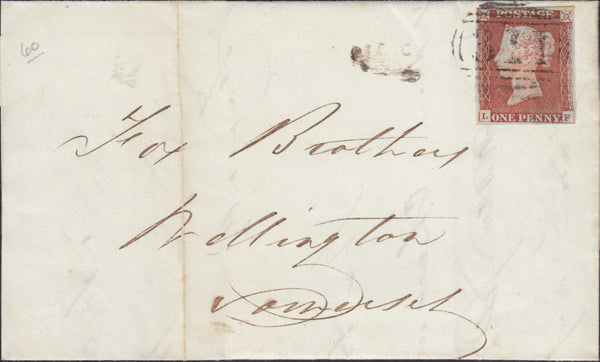 60
POSTAGE
L ONE PENNY F
Fox Brothers
Wellington
Somerset